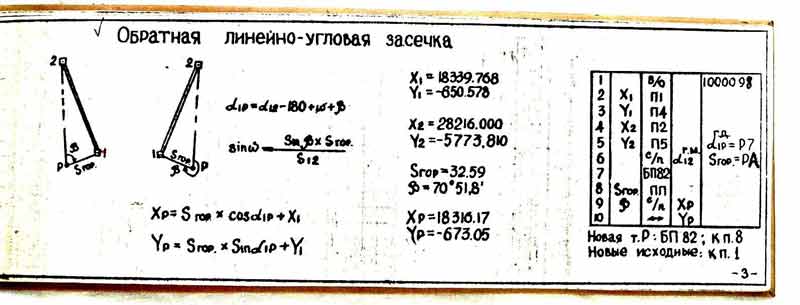 Обратная линейно-угловая засечка
2
β
P
Sгор.
1
2
1
Sгор.
β
P
α1P = α12 - 180 + ω + β
sin ω = Sin β × Sгор. / S12
XP = Sгор. × cos α1P + X1
YP = Sгор. × Sin α1P + Y1
X1 = 18339.768
Y1 = -650.578
X2 = 28216.000
Y2 = -5773,810
Sгор = 32.59
β = 70°51,8'
XP = 18316.17
YP = -673.05
1 В/О 1000098
2 X1 П1
3 Y1 П4
4 X2 П2
5 Y2 П5 г.м. г.д. α1P = P7
6 С/П α12 Sгор. = PA
7 БП82
8 Sгор ПП
9 β С/П XP
10 YP
Новая т.P: БП 82; К П.8
Новые исходные: К П.1
-3-